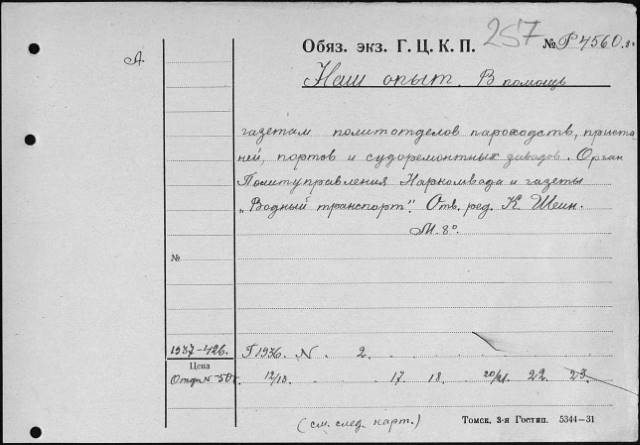 Обяз. экз. Г. Ц. К. П. 257 № Р 4560
А
Наш опыт. В помощь
газетам политотделов пароходств, приста
ней, портов и судоремонтных заводов. Орган
Политуправления Наркомвода и газеты
„Водный транспорт". Отв. ред. К. Шеин.
М. 8°.
№
1937-426. Г 1936. N. 2.
Цена
12/13 . . . . 17 18 . . 20/21. 22 23
(см. след. карт.)
Томск, 3-я Гостип. 5344—31